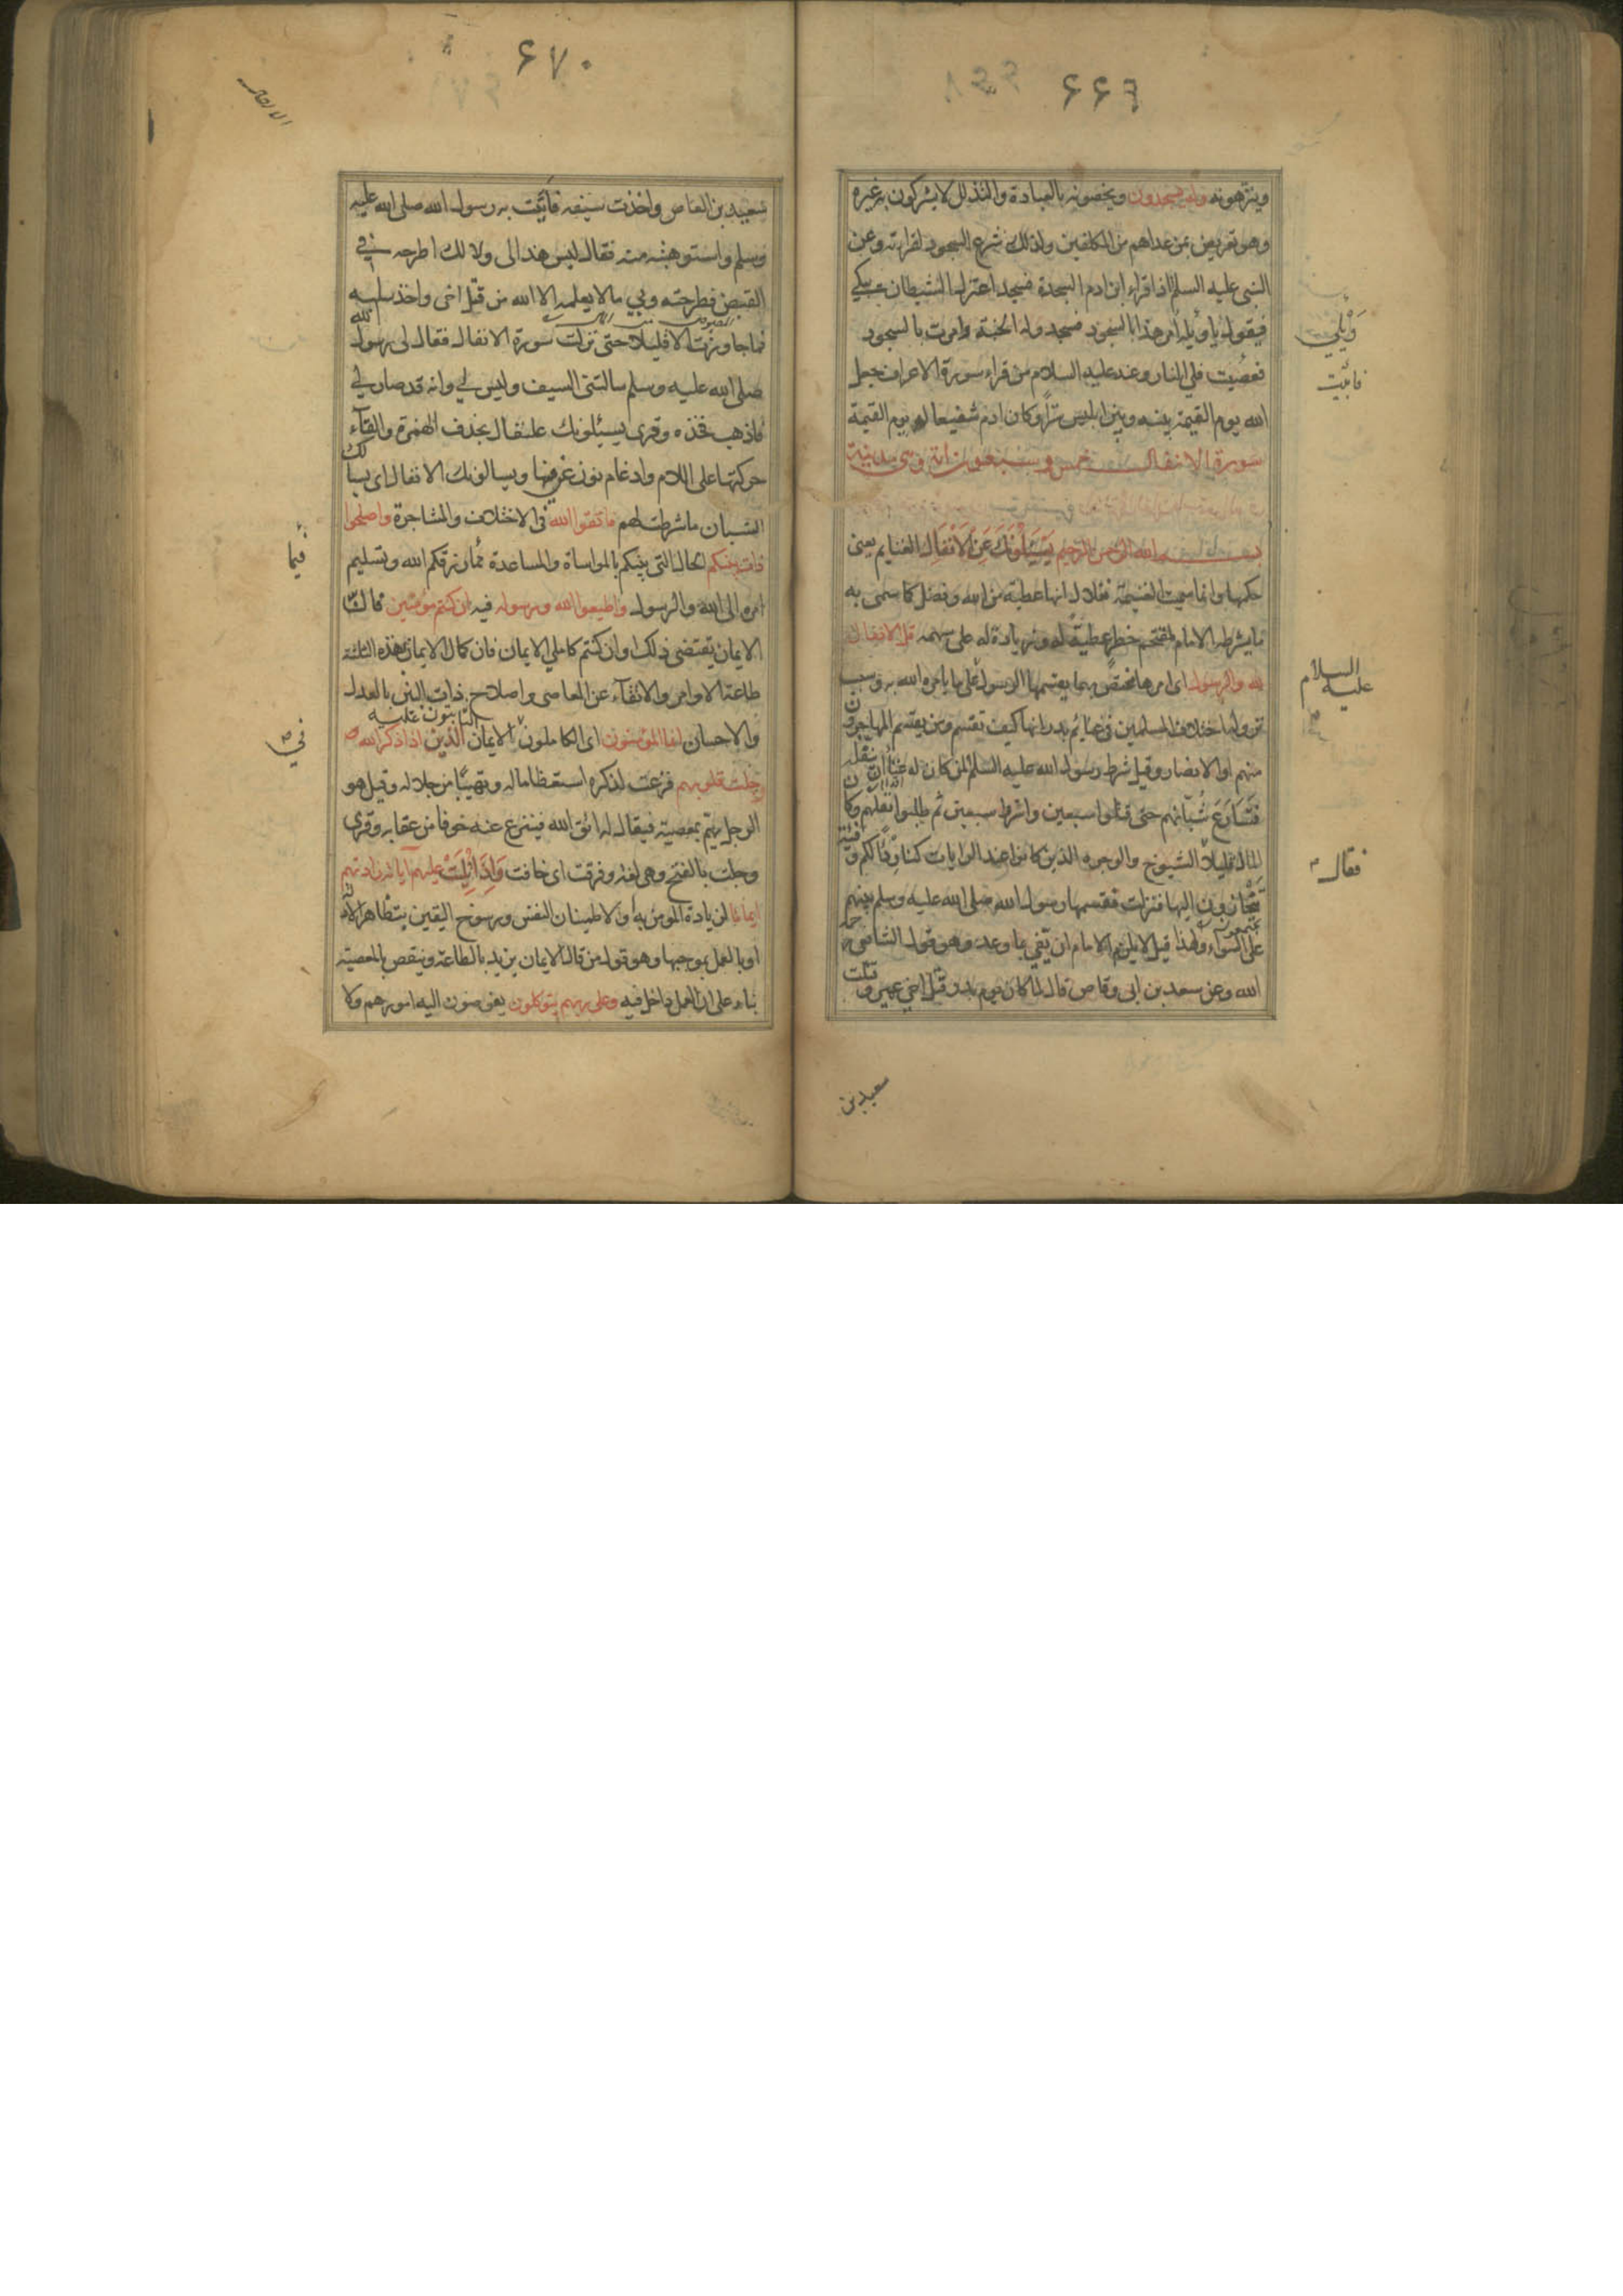 ۶۶۹
وينزهونه وله يسجدون ويخصونه بالعبادة والتذلل لا يشركون به غيره
وهو تعريض بمن عداهم من المكلفين ولذلك شرع السجود لقراءته وعن
النبى عليه السلم اذا قراء ابن ادم السجدة فسجد اعتزل الشيطان يبكي
فيقول يا ويله امر هذا بالسجود فسجد وله الجنة وامرت بالسجود
فعصيت فلي النار وعنه عليه السلام من قراء سورة الاعراف جعل
الله يوم القيمة بينه وبين ابليس سترا وكان ادم شفيعا له يوم القيمة
سورة الانفال خمس وسبعون اية وهى مدنية
بسم الله الرحمن الرحيم يَسْئَلُونَكَ عَنِ الْاَنْفَالِ الغنايم يعنى
حكمها وانما سميت الغنيمة نفلا لانها عطية من الله وفضل كما سمى به
ما يشرطه الامام لمقتحم خطر عطية له وزيادة له على سهمه قل الانفال
لله والرسول اى امرها مختص بهما يقسمها الرسول على ما يامره الله به وسبب
نزولها اختلاف المسلمين فى غنائم بدر انها كيف تقسم ومن يقسم المهاجرون
منهم او الانصار وقيل شرط رسول الله عليه السلم لمن كان له غناء ان ينفله
فتسارع شبانهم حتى قتلوا سبعين واسروا سبعين ثم طلبوا نفلهم وكان
المال قليلا فقال الشيوخ والوجوه الذين كانوا عند الرايات كنا ردءا لكم وفئة
تنحازون اليها فنزلت فقسمها رسول الله صلى الله عليه وسلم بينهم
على السواء ولهذا قيل لا يلزم الامام ان يفي بما وعد وهو قول الشافعى رحمه
الله وعن سعد بن ابى وقاص قال لما كان يوم بدر قتل اخي عمير وقتلت
سعيد بن
وَيْلي
فابيت
عليه السلام
فقال
۶۷۰
سعيد بن العاص واخذت سيفه فاتيت به رسول الله صلى الله عليه
وسلم واستوهبته منه فقال ليس هذا لى ولا لك اطرحه في
القبض فطرحته وبي ما لا يعلمه الا الله من قتل اخى واخذ سلبه
فما جاوزت الا قليلا حتى نزلت سورة الانفال فقال لى رسول الله
صلى الله عليه وسلم سالتنى السيف وليس لي وانه قد صار لي
فاذهب فخذه وقرى يسئلونك علنفال بحذف الهمزة والقآء
حركتها على اللام وادغام نون عن فيها ويسالونك الانفال اى يسألك
الشبان ما شرطت لهم فاتقوا الله فى الاختلاف والمشاجرة واصلحوا
ذات بينكم الحال التى بينكم بالمواساة والمساعدة مما رزقكم الله وتسليم
امره الى الله والرسول واطيعوا الله ورسوله فيه ان كنتم مؤمنين فان
الايمان يقتضى ذلك او ان كنتم كاملي الايمان فان كمال الايمان بهذه الثلثة
طاعة الاوامر والاتقآء عن المعاصى واصلاح ذات البين بالعدل
والاحسان انما المؤمنون اى الكاملون الايمان الذين اذا ذكر الله
وجلت قلوبهم فزعت لذكره استعظاما له وتهيبا من جلاله وقيل هو
الرجل يهم بمعصية فيقال له اتق الله فينزع عنه خوفا من عقابه وقرى
وجلت بالفتح وهى لغة وفرقت اى خافت واذا تليت عليهم آياته زادتهم
ايمانا لزيادة المومن به او لاطمينان النفس ورسوخ اليقين بتظاهر الادلة
او بالعمل بموجبها وهو قول من قال الايمان يزيد بالطاعة وينقص بالمعصية
بناء على ان العمل داخل فيه وعلى ربهم يتوكلون يفوضون اليه امورهم ولا
فيما
في